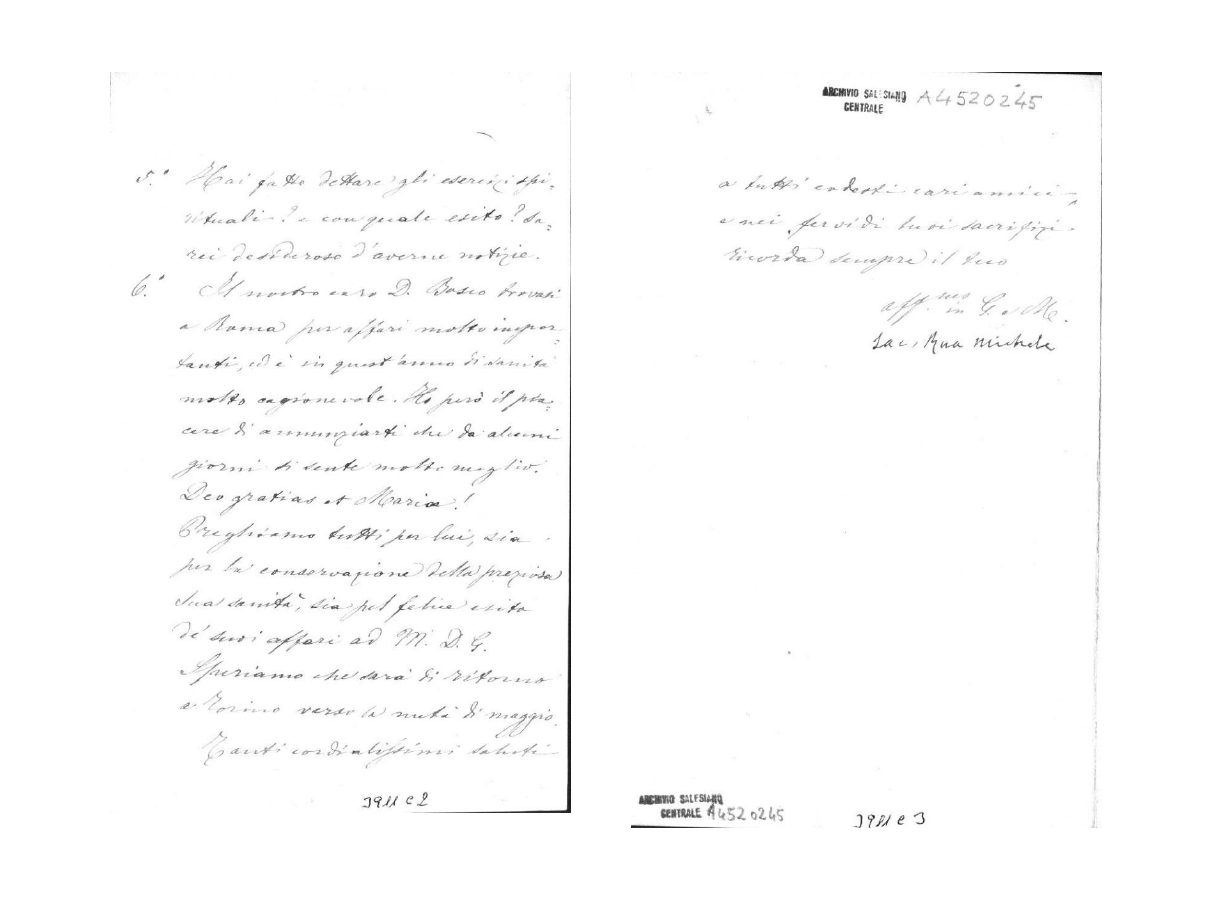 5.° Hai fatto dettare gli esercizi spi-
rituali? e con quale esito? Sa-
rei desideroso d'averne notizie.
6.° Il nostro caro D. Bosco trovasi
a Roma per affari molto impor-
tanti, ed è in quest'anno di sanità
molto cagionevole. Ho però il pia-
cere di annunziarti che da alcuni
giorni si sente molto meglio.
Deo gratias et Mariæ!
Preghiamo tutti per lui, sia
per la conservazione della preziosa
sua sanità, sia pel felice esito
de' suoi affari ad M. D. G.
Speriamo che sarà di ritorno
a Torino verso la metà di maggio.
Tanti cordialissimi saluti
3911 C 2
ARCHIVIO SALESIANO
CENTRALE
A4520245
a tutti codesti cari amici
e nei fervidi tuoi sacrifizi
ricorda sempre il tuo
aff.mo in G. e M.
Sac. Rua Michele
ARCHIVIO SALESIANO
CENTRALE A4520245
3911 C 3